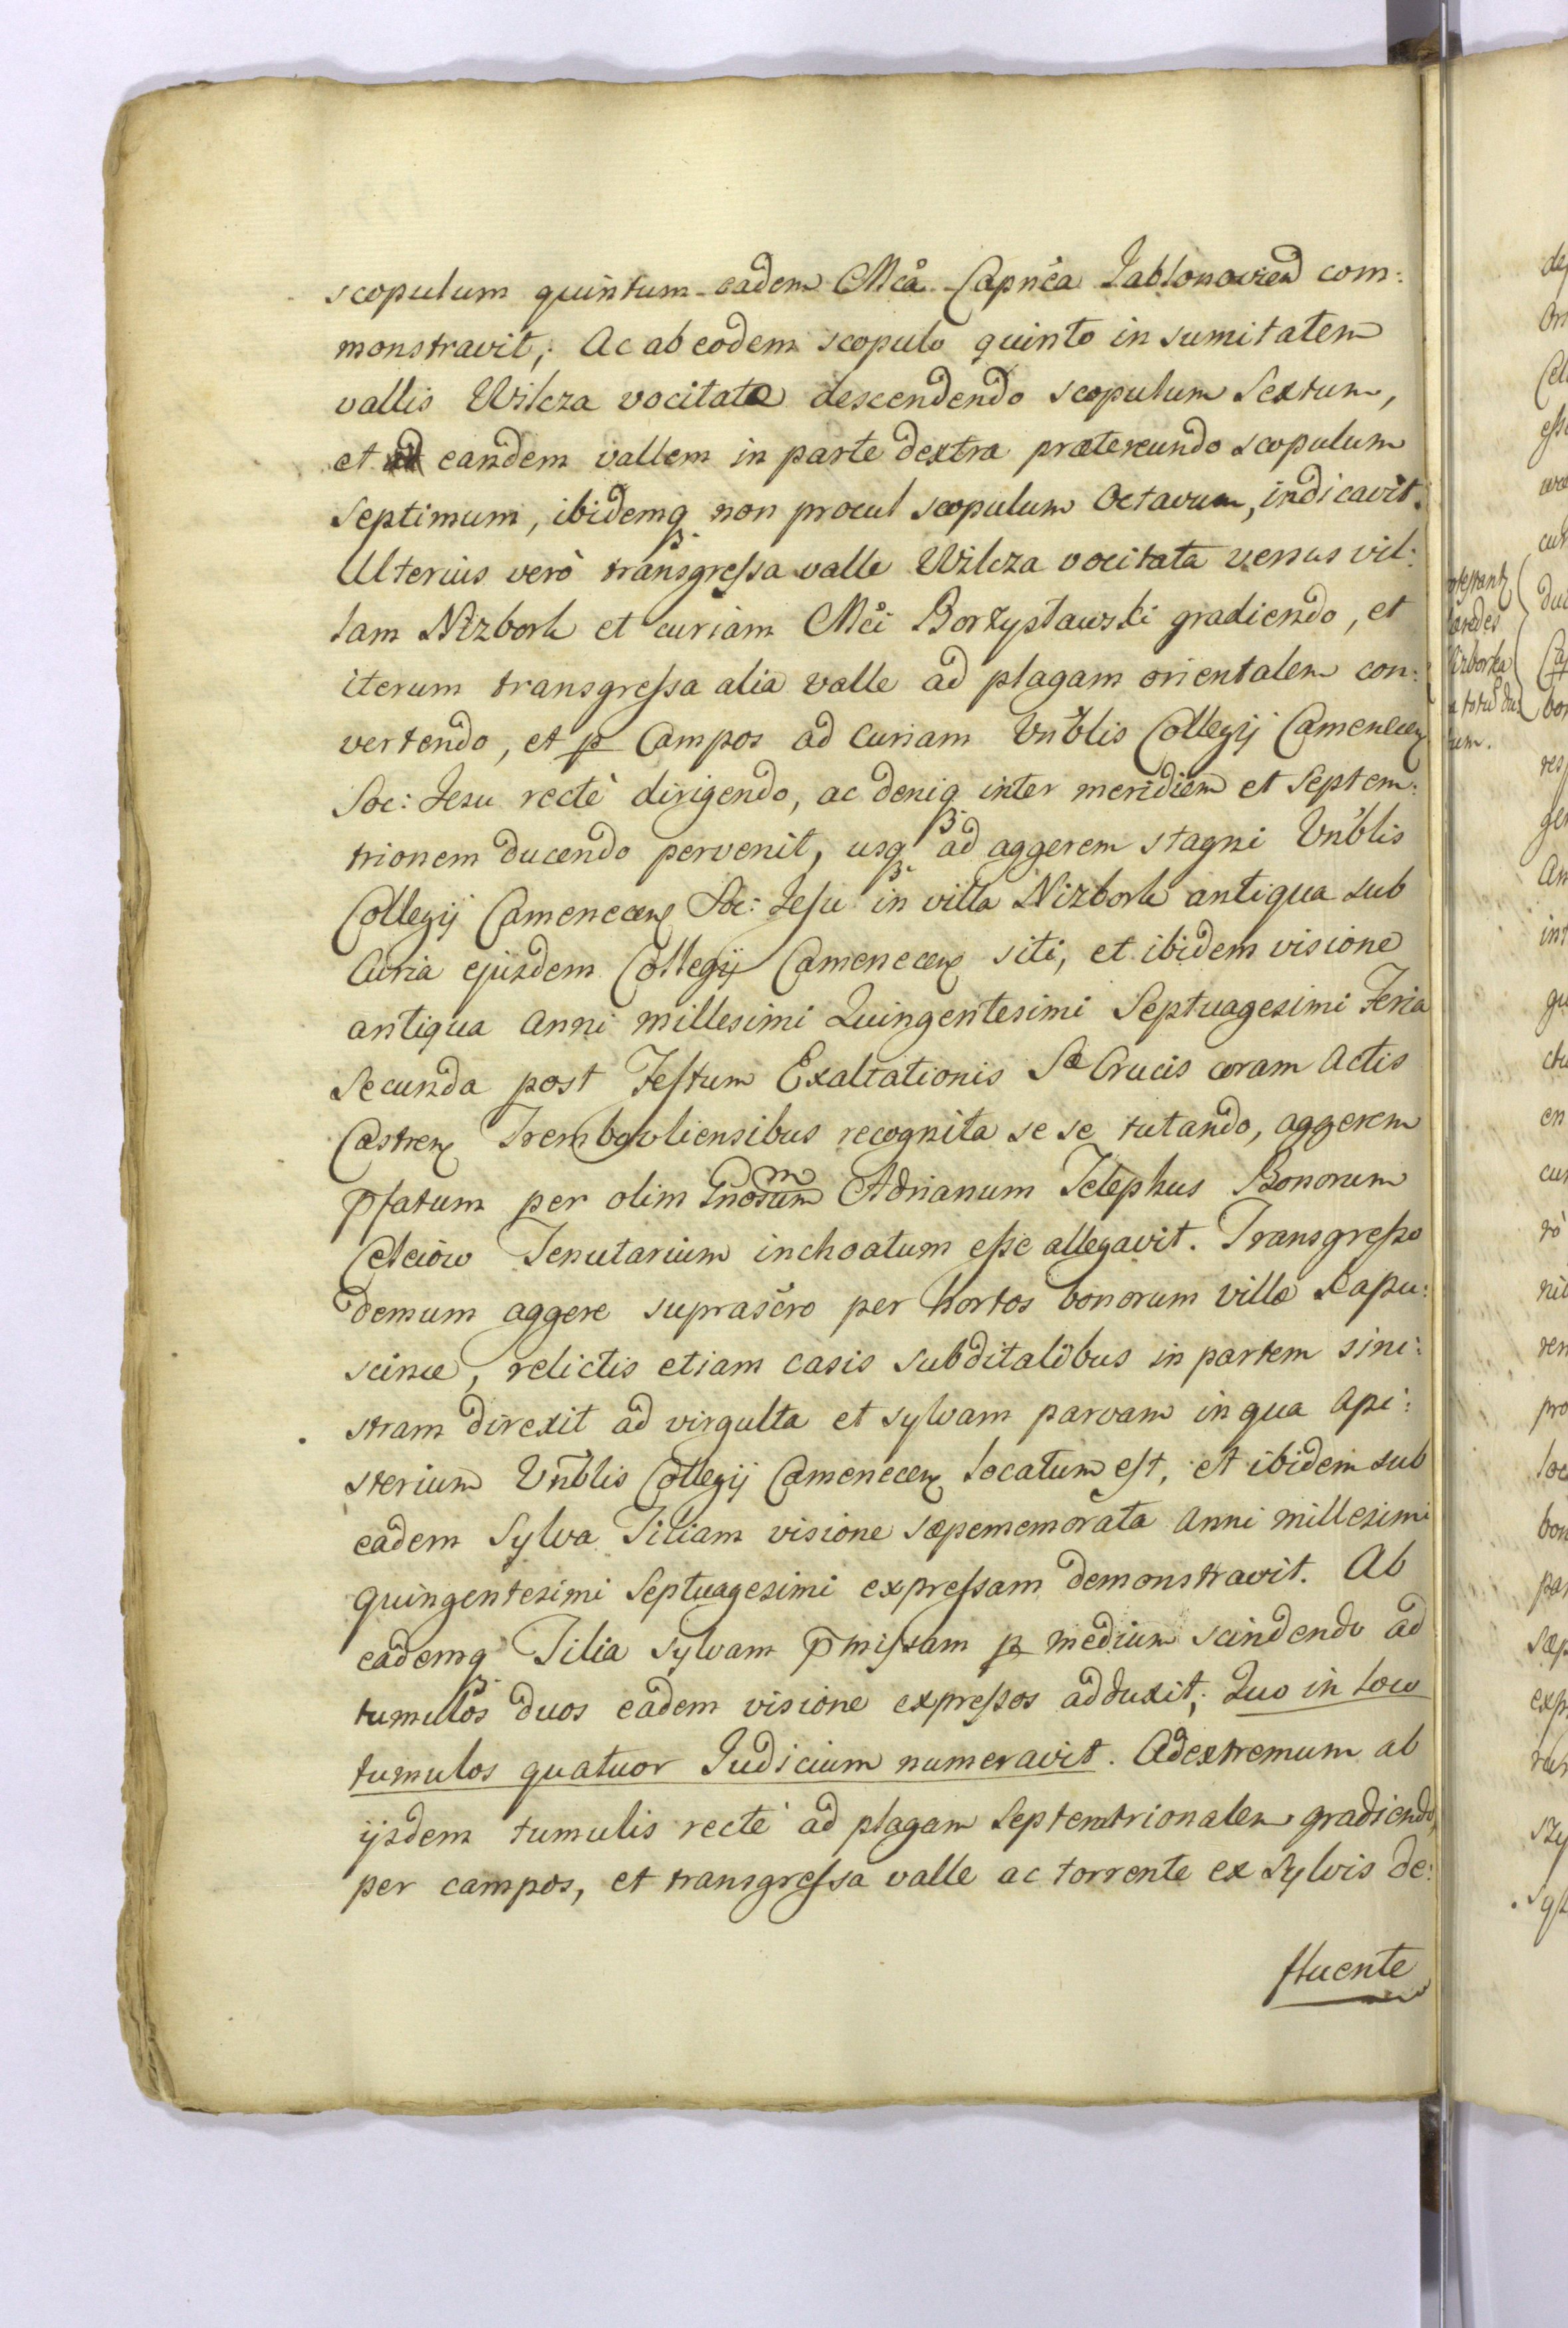 scopulum quintum eadem Mcâ Capnĉa Jablonovien com:
monstravit; Ac ab eodem scopulo quinto in sumitatem
vallis Wilcza vocitatæ descendendo scopulum Sextum,
et eandem vallem in parte dextra prætereundo scopulum
Septimum, ibidemq non procul scopulum Octavum, indicavit.
Ulterius verò transgressa valle Wilcza vocitata versus vil:
lam Nizborh et curiam Mĉi Borzysławski gradiendo, et
iterum transgressa alia valle ad plagam orientalem con:
vertendo, et p Campos ad Curiam Vn̄blis Collegij Camenecen
Soc: Jesu rectè dirigendo, ac deniq inter meridiem et Septem:
trionem ducendo pervenit, usq ad aggerem stagni Vn̄blis
Collegij Camenecen Soc: Jesu in villa Nizborh antiqua sub
Curia ejusdem Collegij Camenecen siti, et ibidem visione
antiqua Anni millesimi Quingentesimi Septuagesimi Feria
Secunda post Festum Exaltationis Sæ Crucis coram Actis
Castren Trembovliensibus recognita se se tutando, aggerem
p̄fatum per olim Gnosum Adrianum Telephus Bonorum
Celeiów Tenutarium inchoatum esse allegavit. Transgresso
demum aggere suprasc̄ro per hortos bonorum villæ Kapu:
scince, relictis etiam casis subditalibus in partem sini:
stram direxit ad virgulta et sylvam parvam in qua Api:
sterium Vn̄blis Collegij Camenecen locatum est, et ibidem sub
eadem Sylva Tiliam visione sæpememorata Anni millesimi
quingentesimi Septuagesimi expressam demonstravit. Ab
eademq Tilia sylvam p̄missam p medium scindendo ad
tumulos duos eadem visione expressos adduxit; Quo in loco
tumulos quatuor Judicium numeravit. Adextremum ab
ijsdem tumulis rectè ad plagam Septemtrionalem gradiendo,
per campos, et transgressa valle ac torrente ex Sylvis de:
fluente